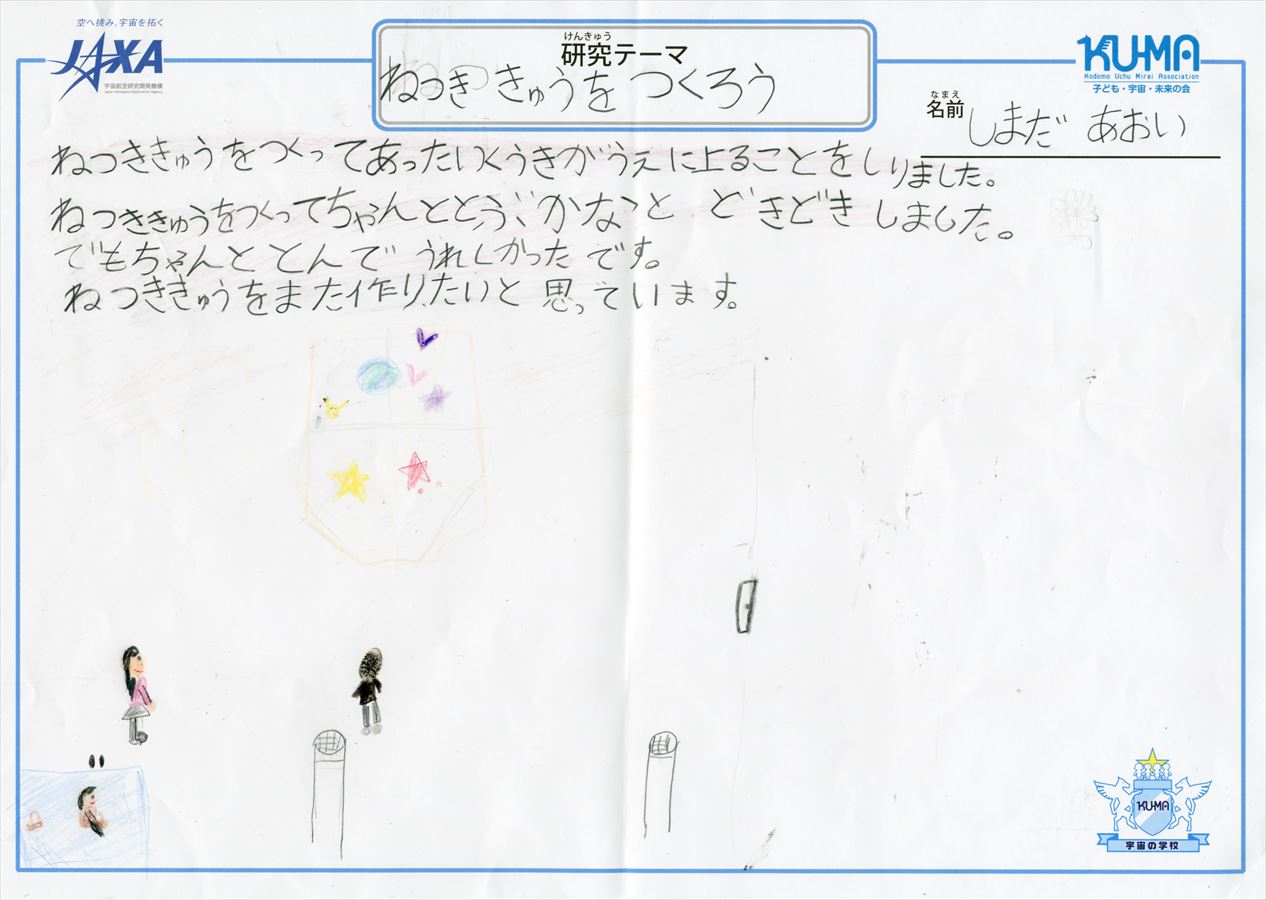 空へ挑み、宇宙を拓く
JAXA
宇宙航空研究開発機構
Japan Aerospace Exploration Agency
けんきゅう
研究テーマ
ねつききゅうをつくろう
KU-MA
Kodomo Uchu Mirai Association
子ども・宇宙・未来の会
なまえ
名前
しまだ あおい
ねつききゅうをつくってあったいくうきがうえに上ることをしりました。
ねつききゅうをつくってちゃんととぶかなっと どきどきしました。
でもちゃんととんで うれしかったです。
ねつききゅうをまた作りたいと思っています。
KU-MA
宇宙の学校